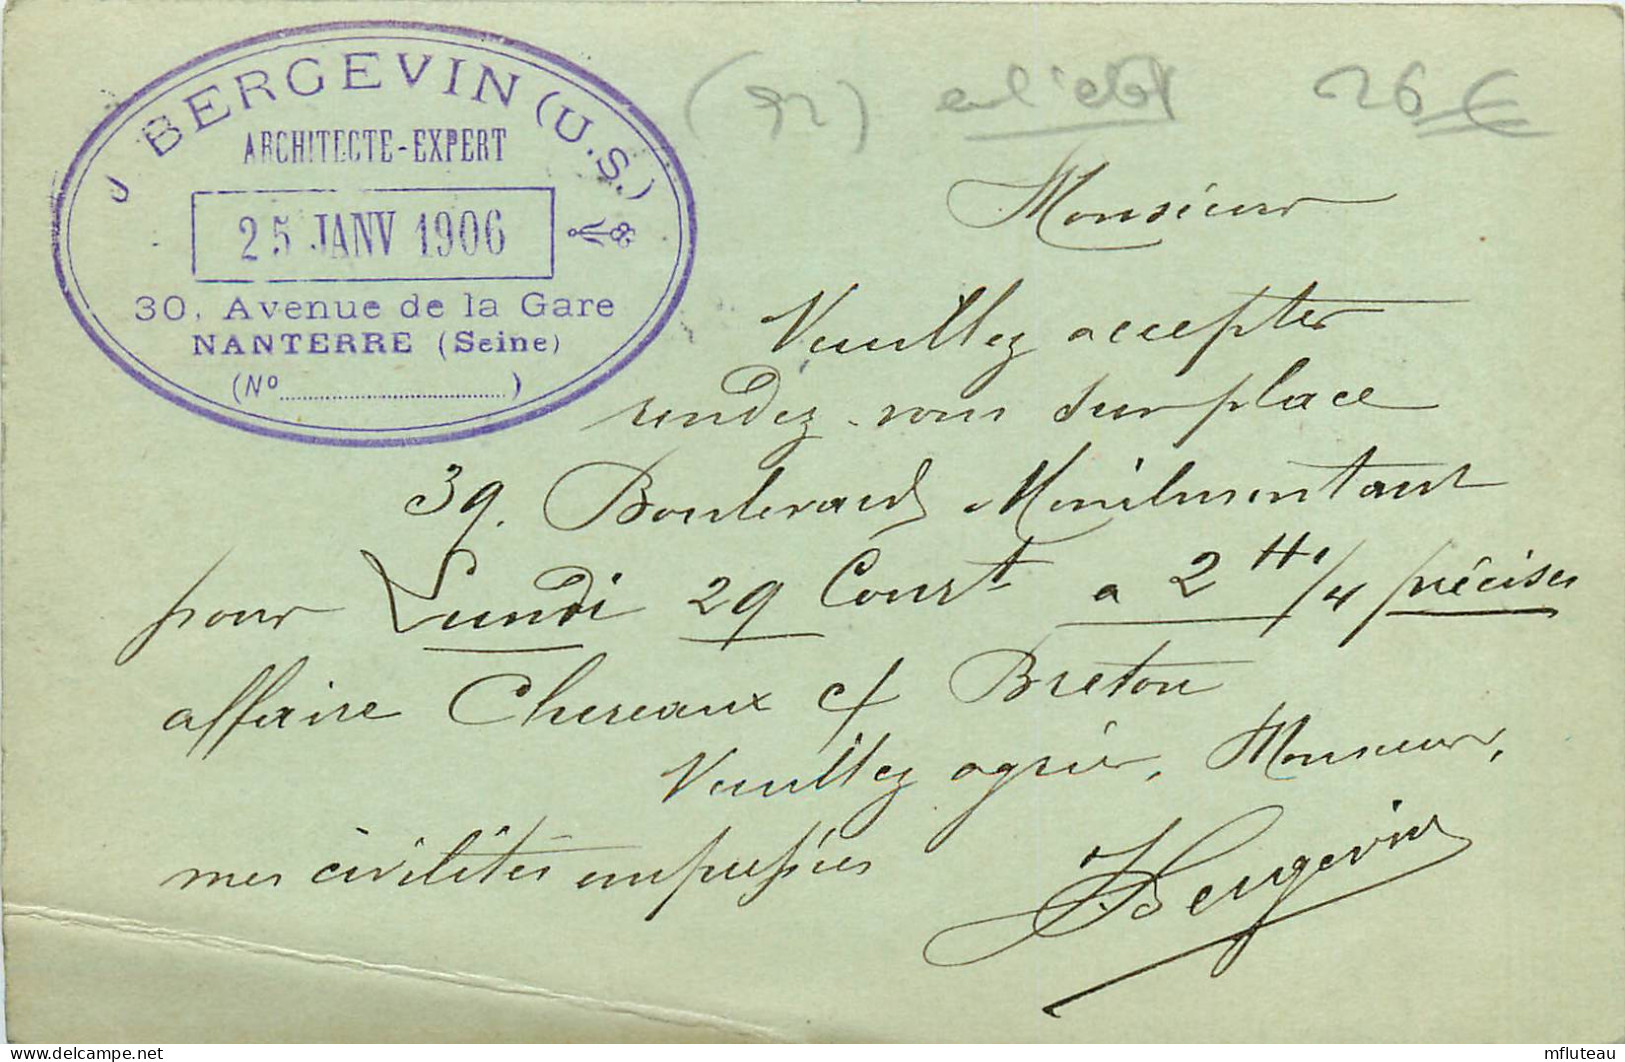 J. BERGEVIN (U.S.)
ARCHITECTE-EXPERT
25 JANV 1906
30, Avenue de la Gare
NANTERRE (Seine)
(No ................................ )
(92) en l'état 26 €
Monsieur
Veuillez accepter
rendez-vous sur place
39. Boulevard Menilmontant
pour Lundi 29 Court a 2 H 1/4 précises
affaire Chereaux c/ Breton
Veuillez agréer, Monsieur,
mes civilités empressées
J. Bergevin
delcampe.net
mfluteau